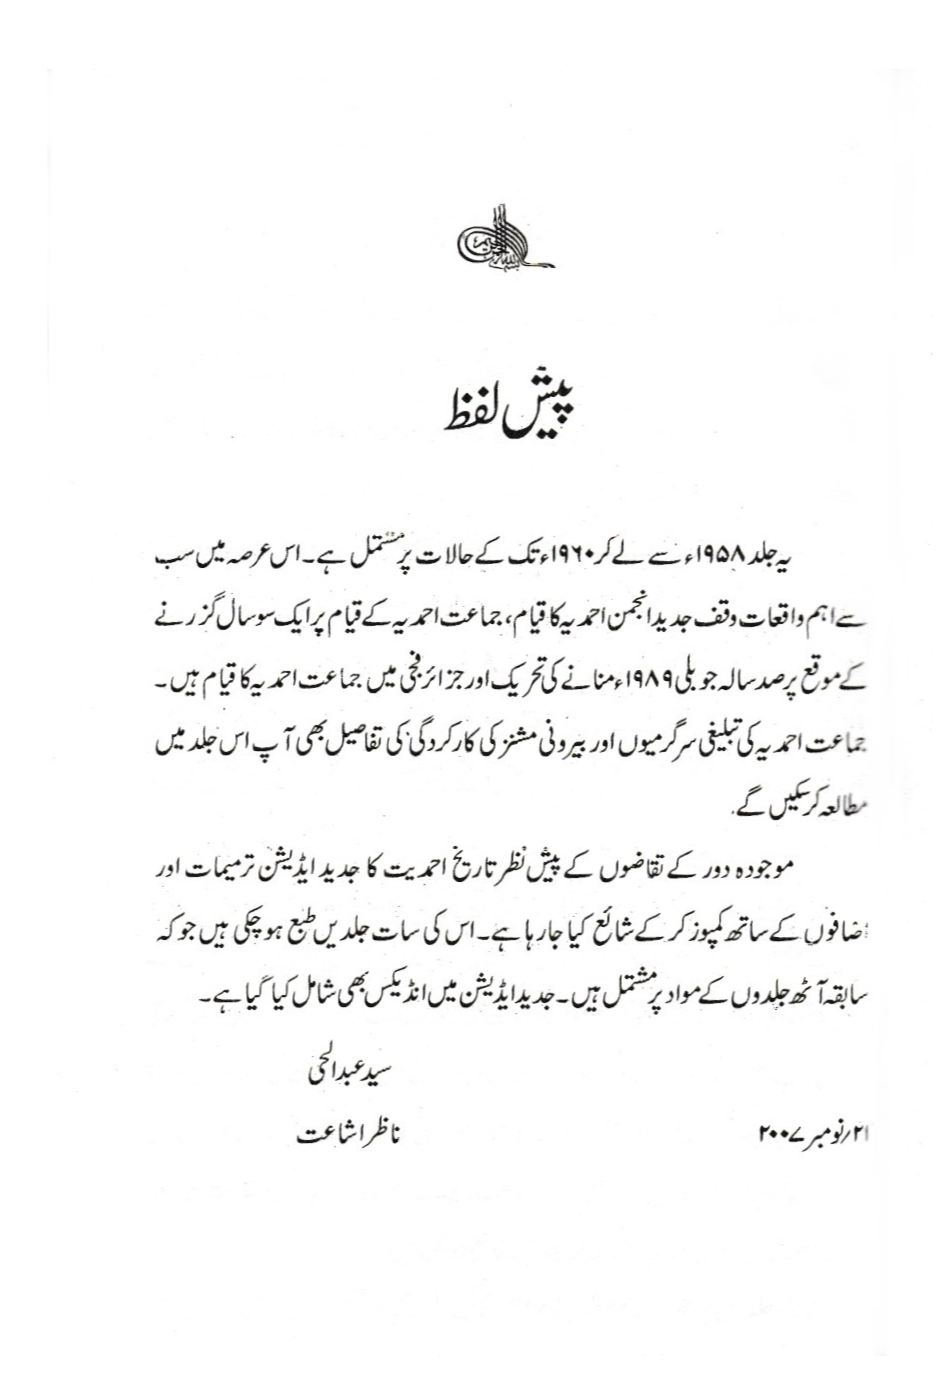 بسم اللہ الرحمن الرحیم
پیش لفظ
یہ جلد ۱۹۵۸ء سے لے کر ۱۹۶۰ء تک کے حالات پر مشتمل ہے۔ اس عرصہ میں سب
سے اہم واقعات وقف جدید انجمن احمدیہ کا قیام، جماعت احمدیہ کے قیام پر ایک سو سال گزرنے
کے موقع پر صد سالہ جوبلی ۱۹۸۹ء منانے کی تحریک اور جزائر فجی میں جماعت احمدیہ کا قیام ہیں۔
جماعت احمدیہ کی تبلیغی سرگرمیوں اور بیرونی مشنز کی کارکردگی کی تفاصیل بھی آپ اس جلد میں
مطالعہ کر سکیں گے۔
موجودہ دور کے تقاضوں کے پیش نظر تاریخ احمدیت کا جدید ایڈیشن ترمیمات اور
اضافوں کے ساتھ کمپوز کر کے شائع کیا جا رہا ہے۔ اس کی سات جلدیں طبع ہو چکی ہیں جو کہ
سابقہ آٹھ جلدوں کے مواد پر مشتمل ہیں۔ جدید ایڈیشن میں انڈیکس بھی شامل کیا گیا ہے۔
سید عبدالحی
۲۱/نومبر ۲۰۰۷ ناظر اشاعت